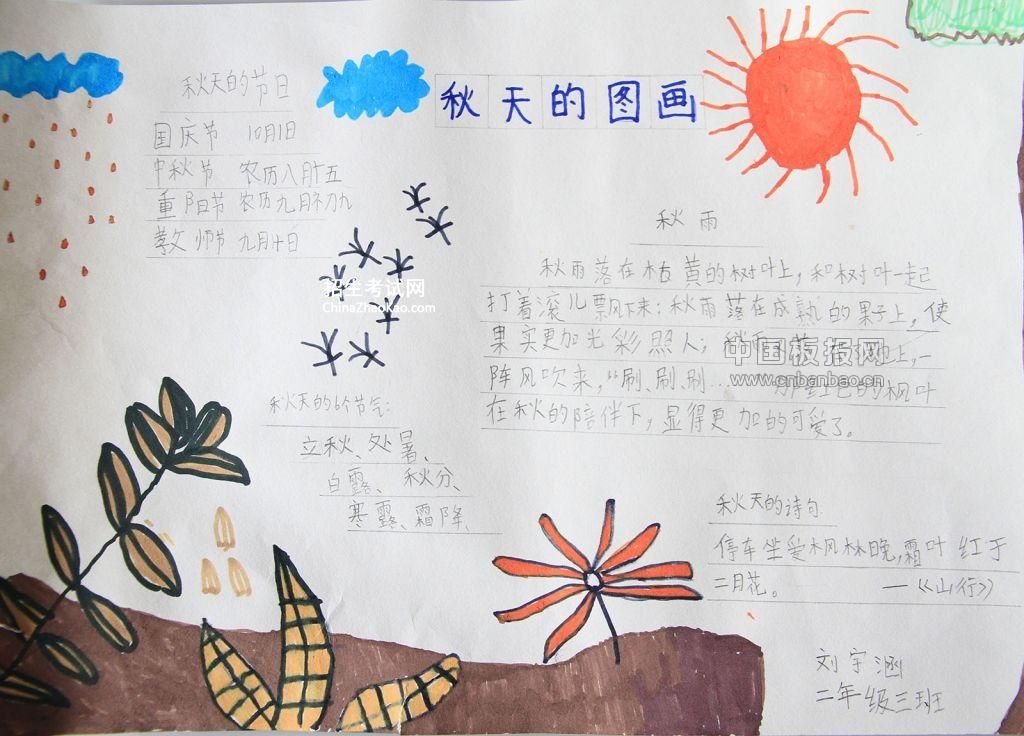 秋天的图画
秋天的节日
国庆节 10月1日
中秋节 农历八月十五
重阳节 农历九月初九
教师节 九月十日
招生考试网
ChinaZhaokao.com
秋天的6个节气:
立秋、处暑、
白露、秋分、
寒露、霜降、
秋雨
秋雨落在枯黄的树叶上,和树叶一起
打着滚儿飘下来;秋雨落在成熟的果子上,使
果实更加光彩照人;秋雨 上,一
阵风吹来,“刷、刷、刷… 红色的枫叶
在秋的陪伴下,显得更加的可爱了。
中国板报网
www.cnbanbao.cn
秋天的诗句
停车坐爱枫林晚,霜叶红于
二月花。 —《山行》
刘宇涵
二年级三班